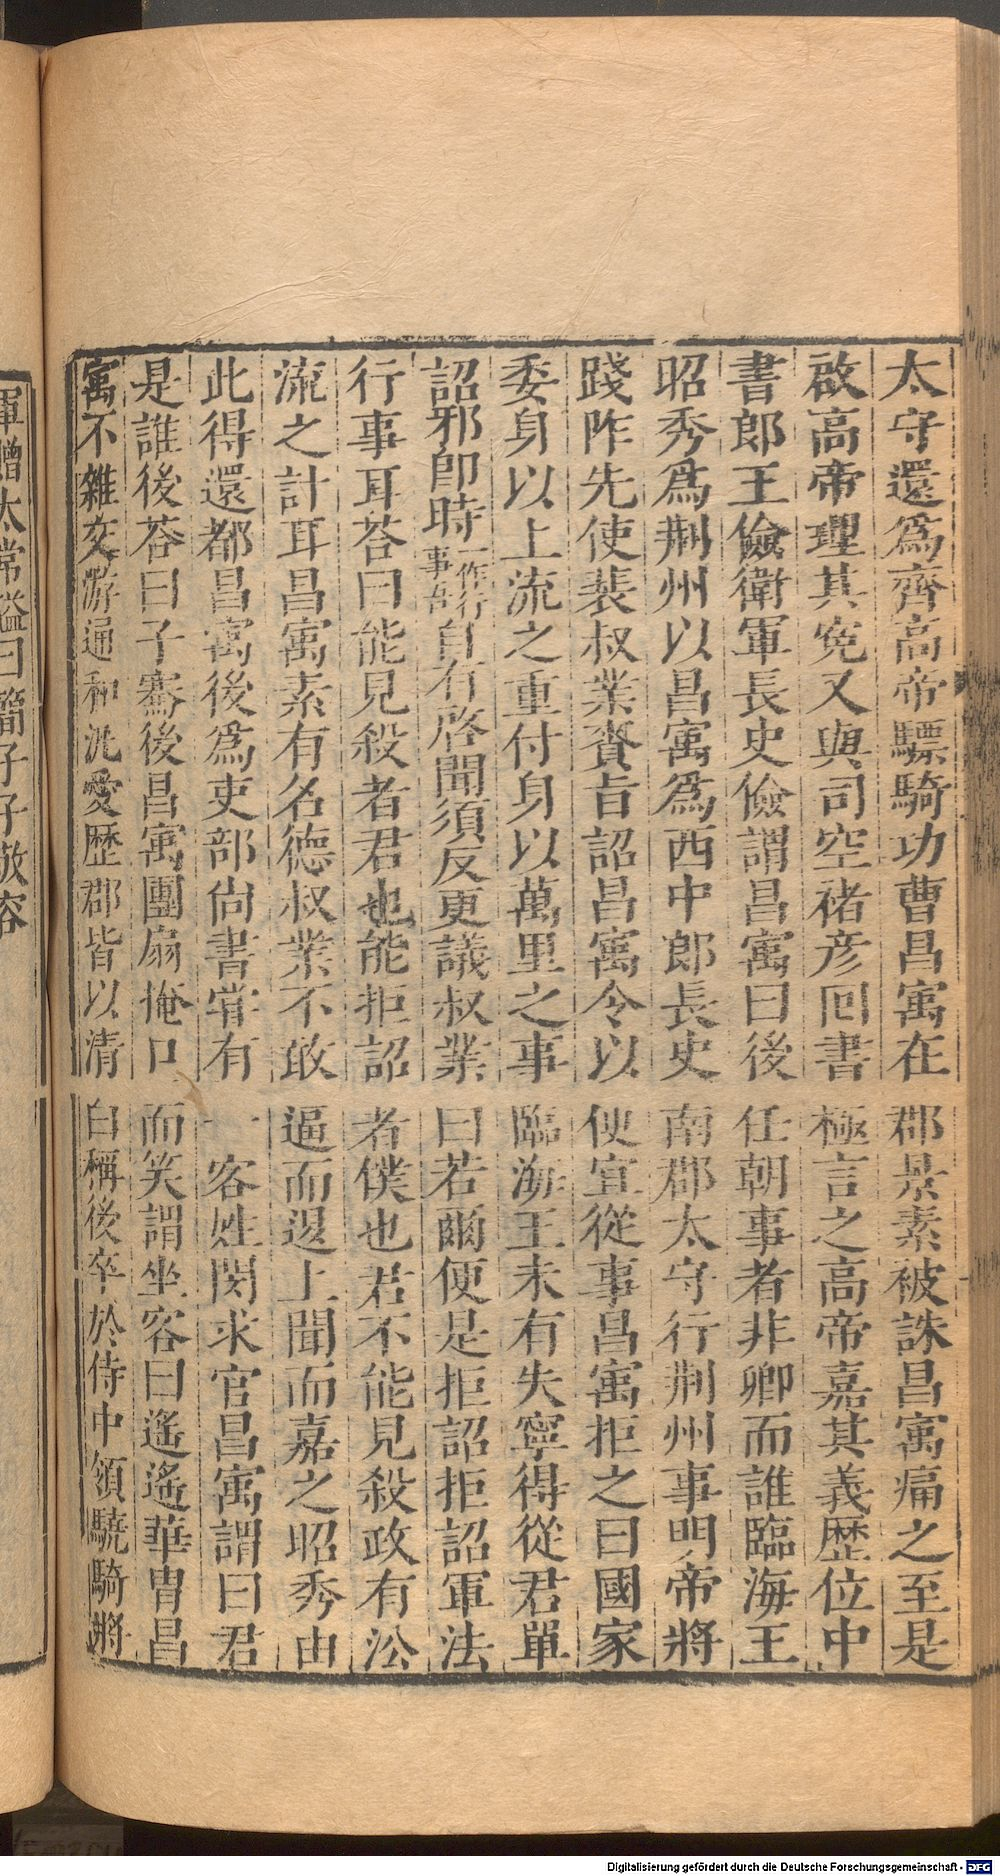 太守還爲齊高帝驃騎功曹昌㝢在郡景素被誅昌㝢痛之至是
啟高帝理其寃又與司空褚彦囘書極言之高帝嘉其義歷位中
書郎王儉衛軍長史儉謂昌㝢曰後任朝事者非卿而誰臨海王
昭秀爲荆州以昌㝢爲西中郎長史南郡太守行荆州事明帝將
踐阼先使裴叔業賫旨詔昌㝢令以便宜從事昌㝢拒之曰國家
委身以上流之重付身以萬里之事臨海王未有失寧得從君單
詔邪卽時一作行事吾自有啓聞須反更議叔業曰若爾便是拒詔拒詔軍法
行事耳荅曰能見殺者君也能拒詔者僕也君不能見殺政有㳂
流之計耳昌㝢素有名德叔業不敢逼而退上聞而嘉之昭秀由
此得還都昌㝢後爲吏部尙書嘗有一客姓閔求官昌㝢謂曰君
是誰後荅曰子騫後昌㝢團扇掩口而笑謂坐客曰遙遙華胄昌
㝢不雜交游通和汎愛歷郡皆以清白稱後卒於侍中領驍騎將
軍贈太常諡曰簡子子敬容
Digitalisierung gefördert durch die Deutsche Forschungsgemeinschaft - DFG